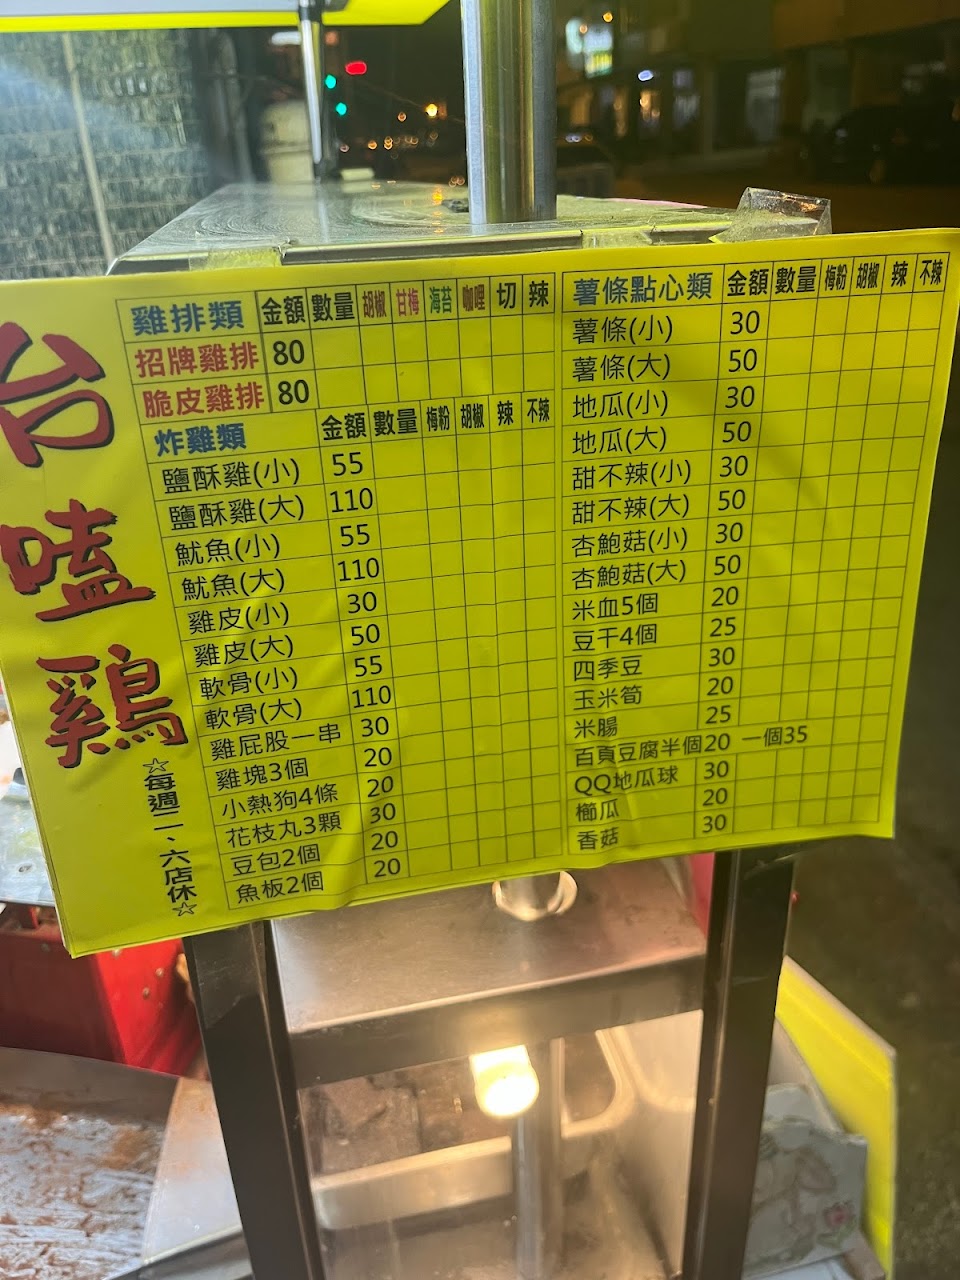 台嗑鷄
☆每週二、六店休☆
雞排類 金額 數量 胡椒 甘梅 海苔 咖哩 切 辣
招牌雞排 80
脆皮雞排 80
炸雞類 金額 數量 梅粉 胡椒 辣 不辣
鹽酥雞(小) 55
鹽酥雞(大) 110
魷魚(小) 55
魷魚(大) 110
雞皮(小) 30
雞皮(大) 50
軟骨(小) 55
軟骨(大) 110
雞屁股一串 30
雞塊3個 20
小熱狗4條 20
花枝丸3顆 30
豆包2個 20
魚板2個 20
薯條點心類 金額 數量 梅粉 胡椒 辣 不辣
薯條(小) 30
薯條(大) 50
地瓜(小) 30
地瓜(大) 50
甜不辣(小) 30
甜不辣(大) 50
杏鮑菇(小) 30
杏鮑菇(大) 50
米血5個 20
豆干4個 25
四季豆 30
玉米筍 20
米腸 25
百頁豆腐半個20 一個35
QQ地瓜球 30
櫛瓜 20
香菇 30